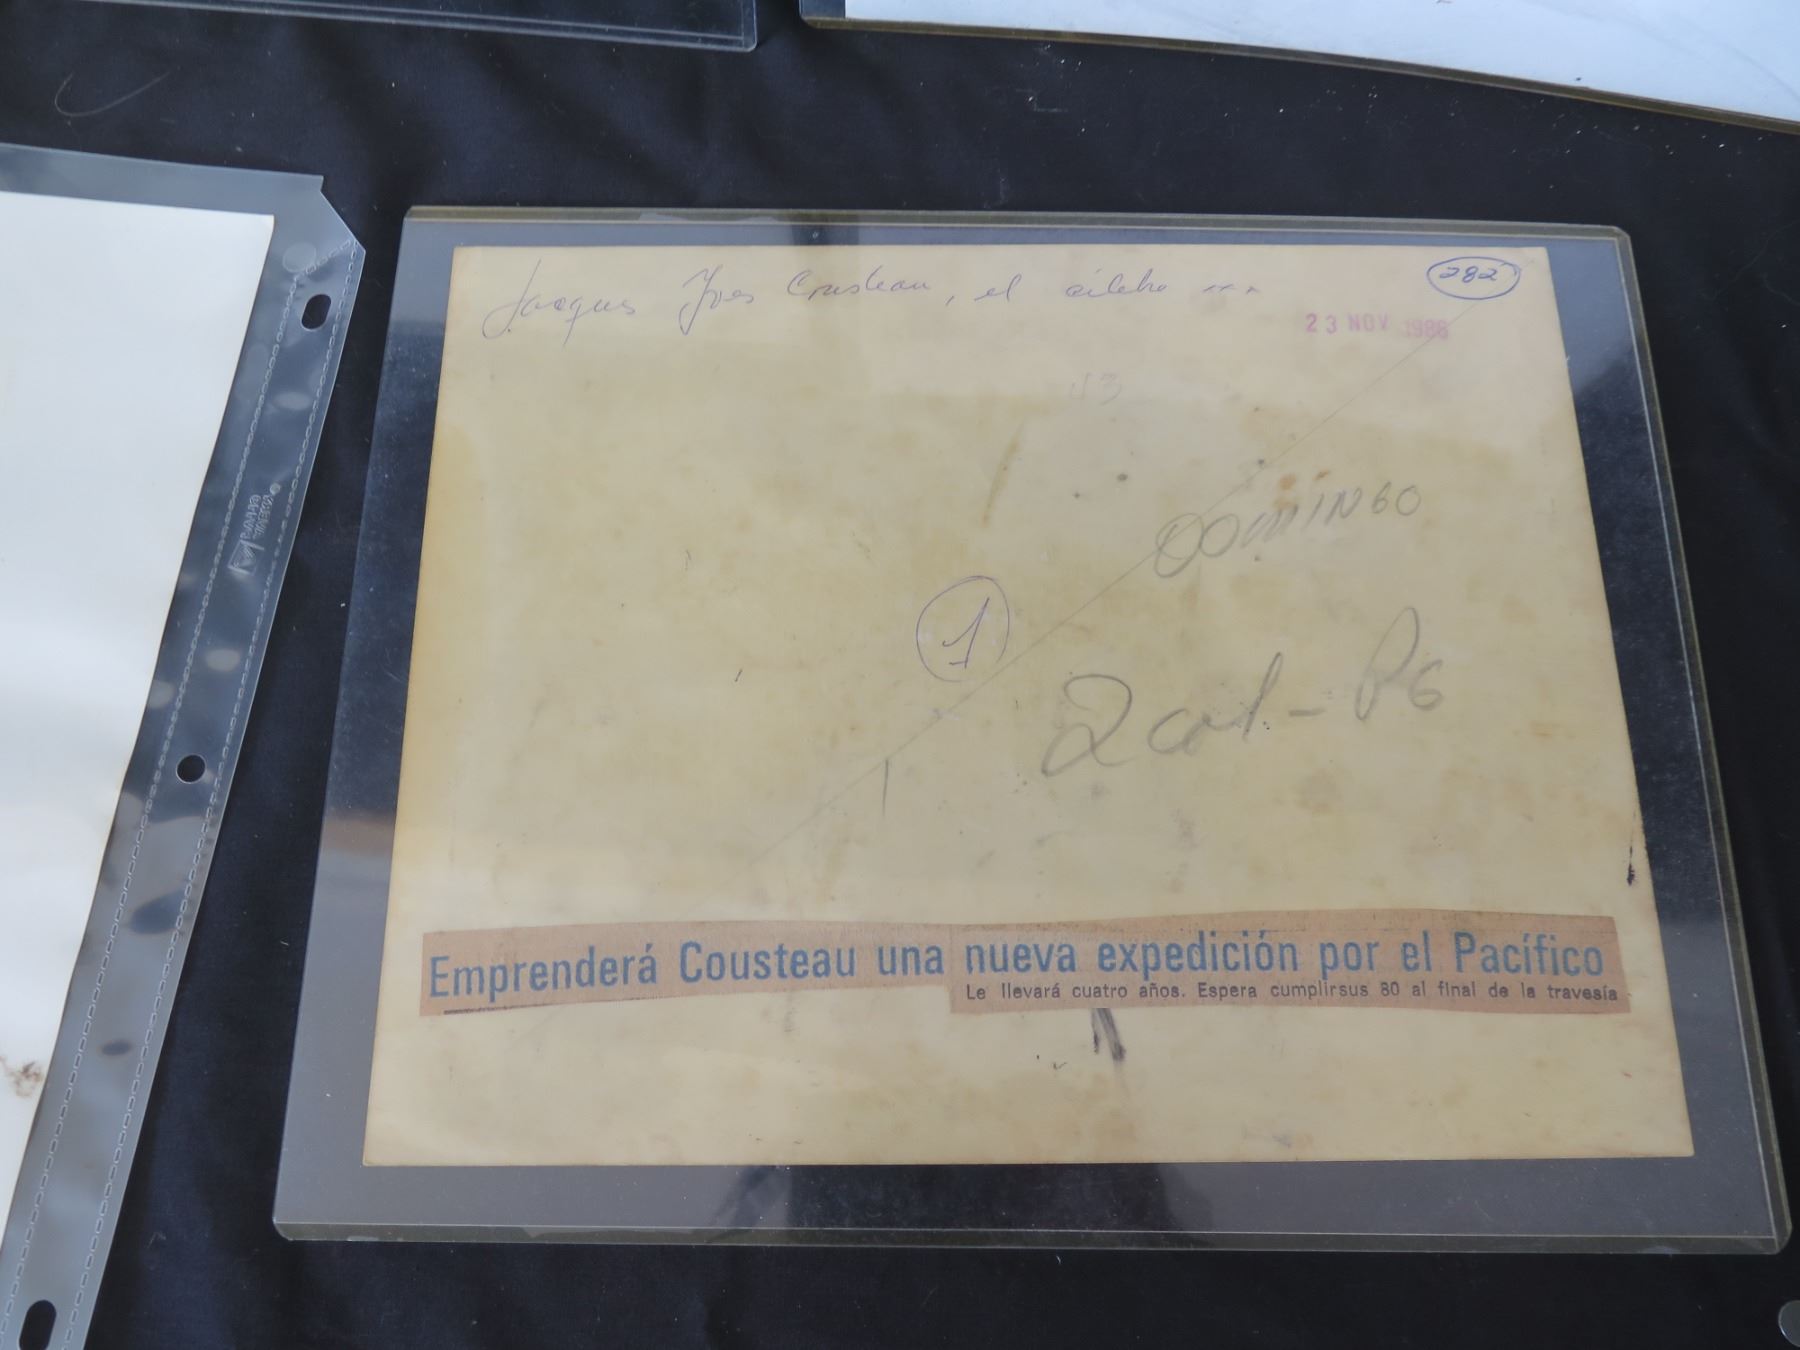 Jacques Yves Cousteau, el célebre xxx
282
23 NOV 1986
N3
DOMINGO
1
2 col - P6
Emprenderá Cousteau una nueva expedición por el Pacífico
Le llevará cuatro años. Espera cumplirsus 80 al final de la travesía